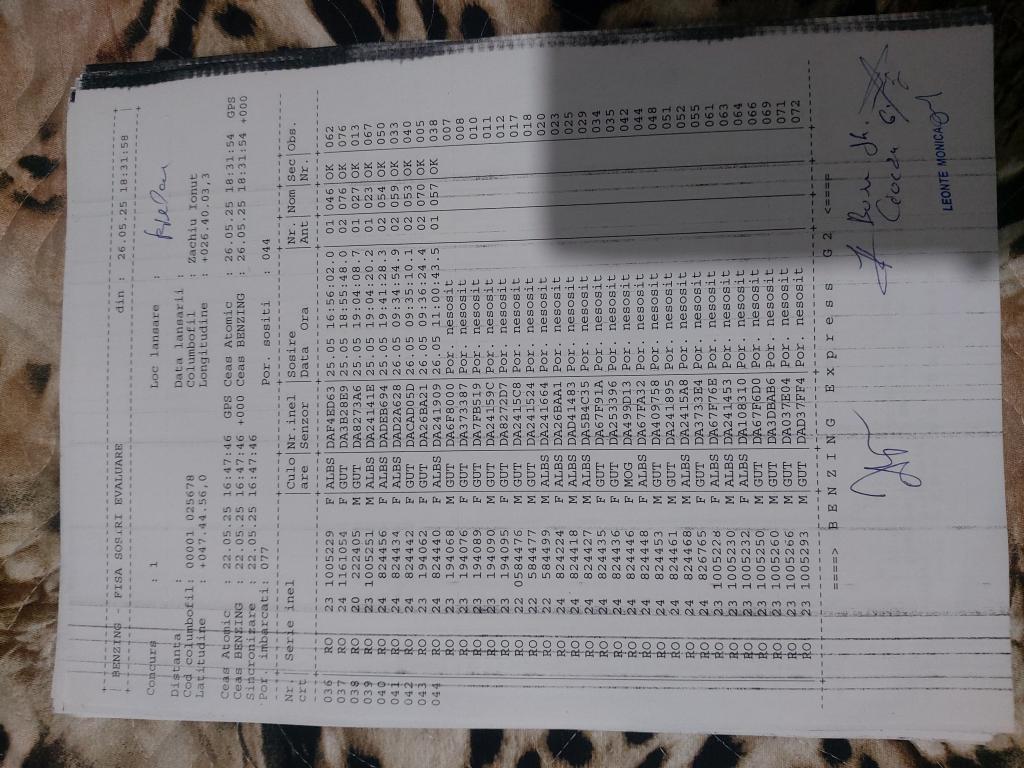 BENZING - FISA SOSIRI EVALUARE din : 26.05.25 18:31:58
Concurs : 1 Loc lansare :
Distanta : Data lansarii :
Cod columbofil: 00001 025678 Columbofil : Zachiu Ionut
Latitudine : +047.44.56,0 Longitudine : +026.40.03,3
Ceas Atomic : 22.05.25 16:47:46 GPS Ceas Atomic : 26.05.25 18:31:54 GPS
Ceas BENZING : 22.05.25 16:47:46 +000 Ceas BENZING : 26.05.25 18:31:54 +000
Sincronizare : 22.05.25 16:47:46
Por. imbarcati: 077 Por. sositi : 044
Nr. Serie inel Culo Nr.inel Sosire Nr. Nom Sec Obs.
crt are Senzor Data Ora Ant Nr.
036 RO 23 1005229 F ALBS DAF4ED63 25.05 16:56:02.0 01 046 OK 062
037 RO 24 1161054 F GUT DA3B28E9 25.05 18:55:48.0 02 076 OK 076
038 RO 20 222405 M GUT DA8273A6 25.05 19:04:08.7 01 027 OK 013
039 RO 23 1005251 M ALBS DA24141E 25.05 19:04:20.2 01 023 OK 067
040 RO 24 824456 F ALBS DADEB694 25.05 19:41:28.3 02 054 OK 050
041 RO 24 824434 F ALBS DAD2A628 26.05 09:34:54.9 02 059 OK 033
042 RO 24 824442 F GUT DACAD05D 26.05 09:35:10.1 02 053 OK 040
043 RO 23 194062 F GUT DA26BA21 26.05 09:36:24.4 02 070 OK 005
044 RO 24 824440 F ALBS DA241909 26.05 11:00:43.5 01 057 OK 038
RO 23 194068 M GUT DA6F8000 Por. nesosit 007
RO 23 194076 F GUT DA373387 Por. nesosit 008
RO 23 194089 F GUT DA7FB519 Por. nesosit 010
RO 23 194090 M GUT DA24159C Por. nesosit 011
RO 23 194095 F GUT DA8272D7 Por. nesosit 012
RO 22 0584476 M GUT DA2415C8 Por. nesosit 017
RO 22 584477 M GUT DA241524 Por. nesosit 018
RO 22 584499 M ALBS DA241664 Por. nesosit 020
RO 24 824224 F ALBS DA26BAA1 Por. nesosit 023
RO 24 824418 M ALBS DAD41483 Por. nesosit 025
RO 24 824427 M ALBS DA5B4C35 Por. nesosit 029
RO 24 824435 F GUT DA67F91A Por. nesosit 034
RO 24 824436 F GUT DA253396 Por. nesosit 035
RO 24 824446 F MOG DA499D13 Por. nesosit 042
RO 24 824448 F ALBS DA67FA32 Por. nesosit 044
RO 24 824453 M GUT DA409758 Por. nesosit 048
RO 24 824461 M GUT DA241895 Por. nesosit 051
RO 24 824468 M ALBS DA2415A8 Por. nesosit 052
RO 24 826765 F GUT DA3733E4 Por. nesosit 055
RO 23 1005228 F ALBS DA67F76E Por. nesosit 061
RO 23 1005230 M ALBS DA241453 Por. nesosit 063
RO 23 1005232 F ALBS DA108310 Por. nesosit 064
RO 23 1005250 M GUT DA67F6D0 Por. nesosit 066
RO 23 1005260 M GUT DA3DBAB6 Por. nesosit 069
RO 23 1005266 M GUT DA037E04 Por. nesosit 071
RO 23 1005293 M GUT DAD37FF4 Por. nesosit 072
====> B E N Z I N G E x p r e s s G 2 <====
LEONTE MONICA